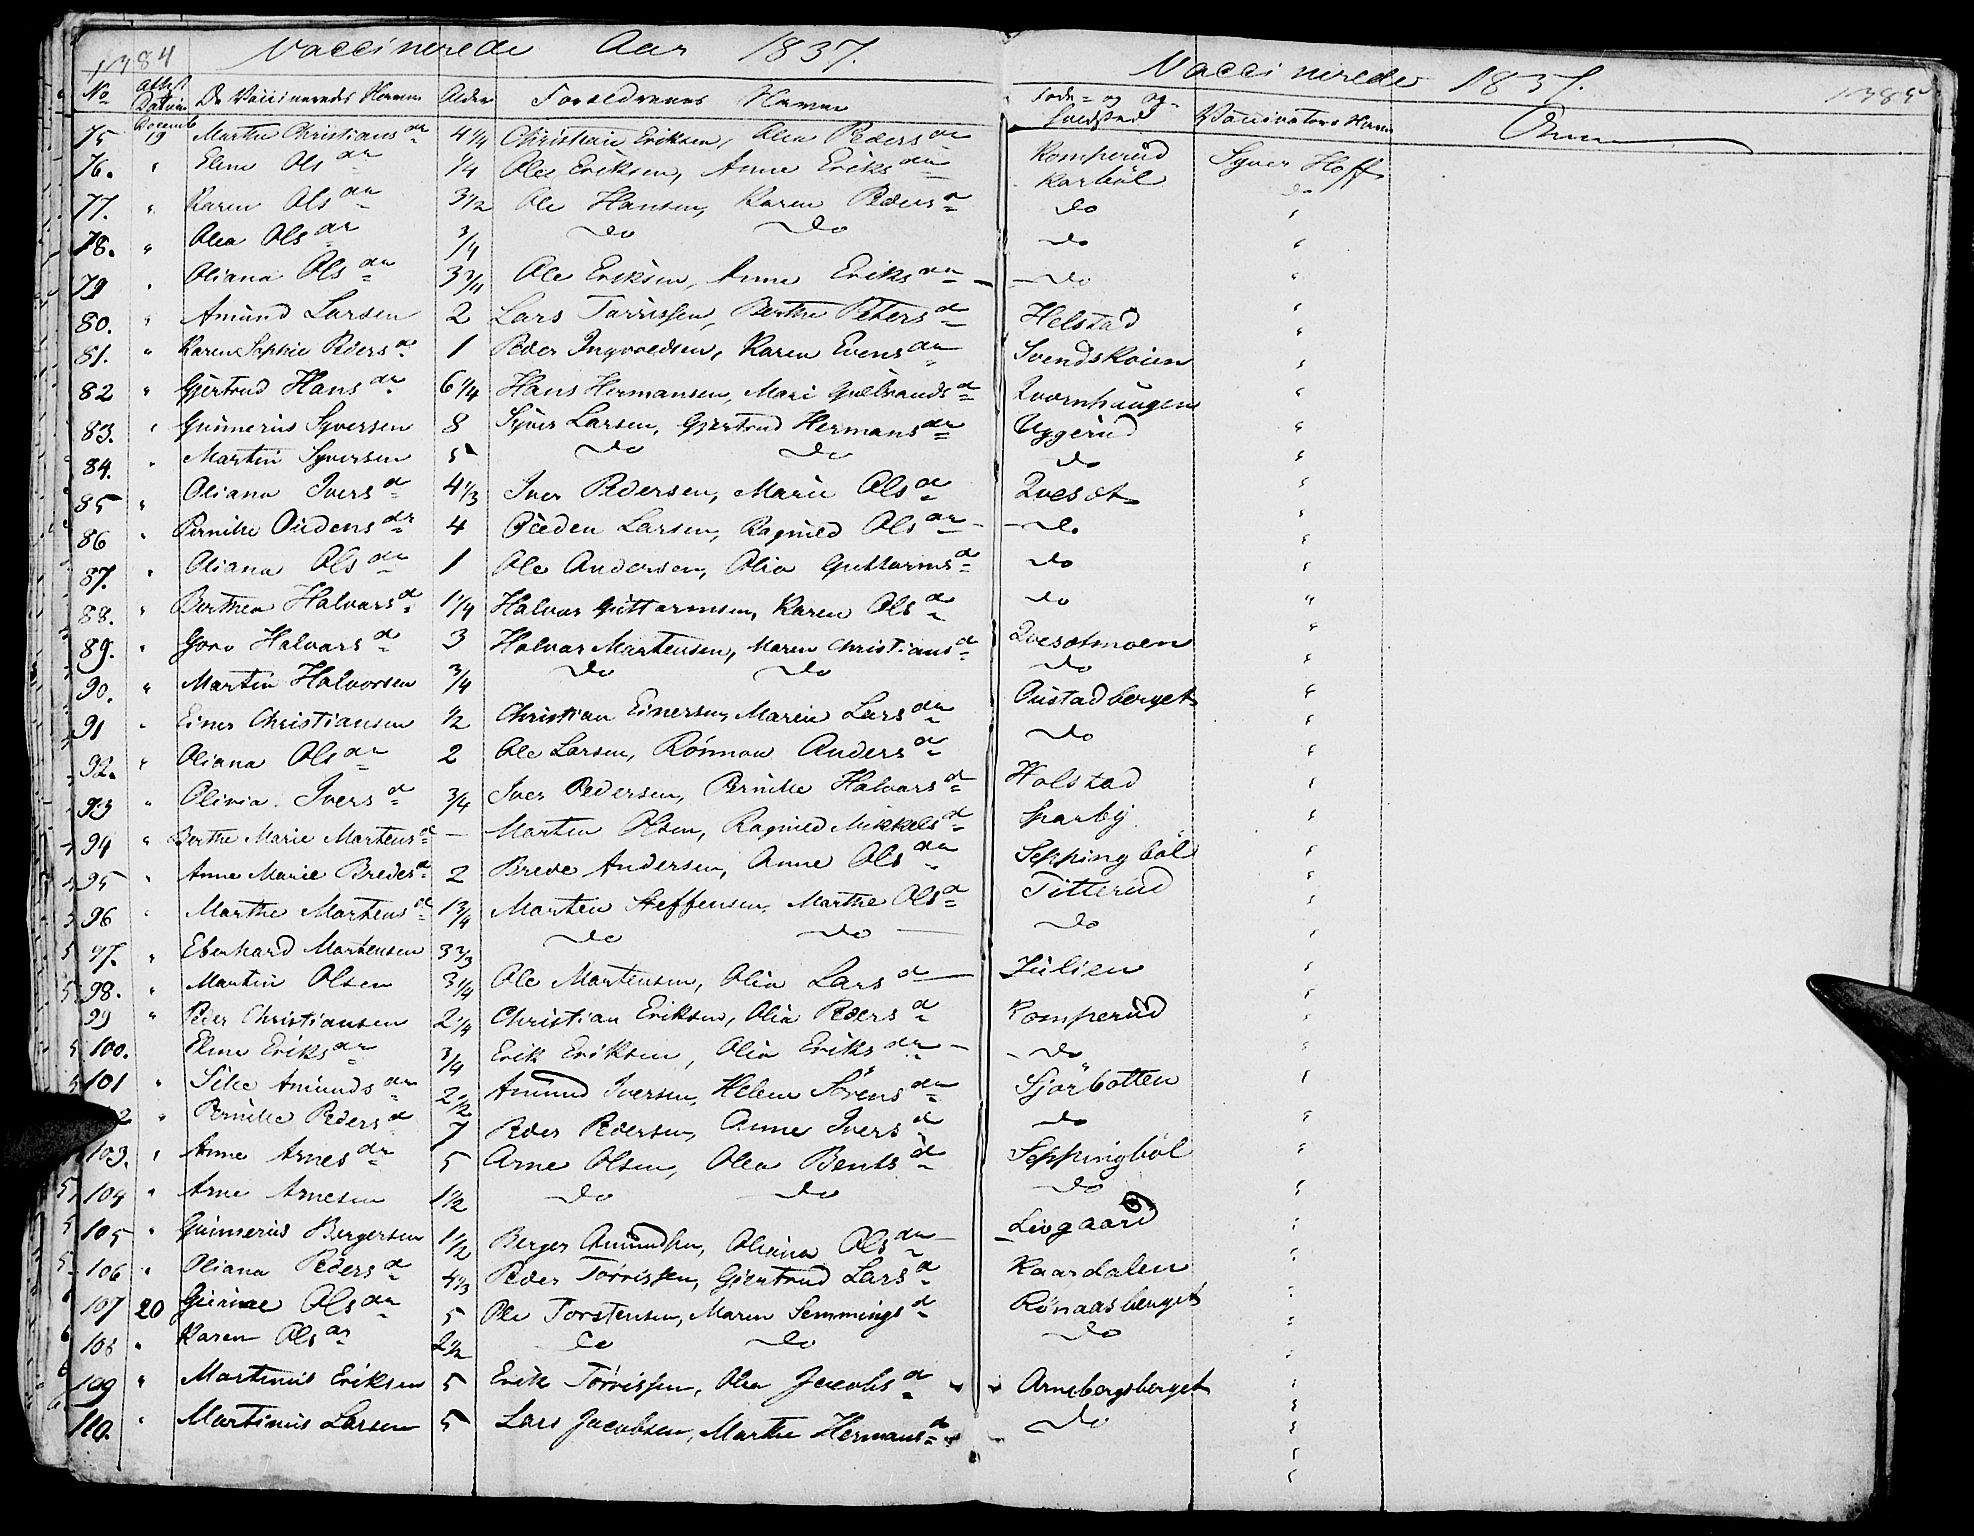 1384 Vaccinerede Aar 1837. Vaccinerede 1837. 1385
No Attest Datum De Vaccineredes Navne Alder Forældrenes Navne Føde- og Op- holdssted Vaccinators Navn
75 Decemb 19 Marthe Christiansdr 4 1/4 Christian Eriksen, Olea Pedersdr Komperud Syver Hoff
76. " Eline Olsdr 1/4 Ole Eriksen, Anne Eriksdr Karböl do
77. " Karen Olsdr 3 1/2 Ole Hansen, Karen Pedersd do "
78. " Olea Olsdr 3/4 do do do "
79 " Oliana Olsdr 3 3/4 Ole Eriksen, Anne Eriksdr do "
80. " Amund Larsen 2 Lars Tørrissen, Berthe Petersd Helstad "
81. " Karen Sophie Pedersd 1 Peder Ingvoldsen, Karen Evensdr Svendskoien "
82 " Gjertrud Hansdr 6 1/4 Hans Hermansen, Mari Gulbrandsd Qvernhaugen "
83. " Gunnerius Syversen 8 Syver Larsen, Gjertrud Hermansdr Uggerud "
84. " Martin Syversen 5 do do do "
85 " Oliana Iversd 4 1/3 Iver Pedersen, Marie Olsd Qvesæt "
86 " Pernille Oudensdr 4 Ouden Larsen, Ragnild Olsdr do "
87. " Oliana Olsdr 1 Ole Andersen, Olia Guttormsd do "
88. " Berthea Halvorsd 1 1/4 Halvor Guttormsen, Karen Olsd do "
89. " Goro Halvorsd 3 Halvor Martensen, Maren Christiansd Qvesætmoen "
90. " Martin Halvorsen 3/4 do do do "
91 " Einer Christiansen 1/2 Christian Einersen, Maren Larsdr Oustadberget "
92. " Oliana Olsdr 2 Ole Larsen, Rønnou Andersd do "
93 " Olivia Iversd 3/4 Iver Pedersen, Pernille Halvorsd Holstad "
94 " Berthe Marie Martensd — Marten Olsen, Ragnild Mikkelsd Sparby "
95 " Anne Marie Bredesd 2 Brede Andersen, Anne Olsdr Seppingböl "
96 " Marthe Martensd 1 3/4 Marten Steffensen, Marthe Olsd Titterud "
97. " Eberhard Martensen 3 2/3 do do do "
98. " Martin Olsen 3 1/4 Ole Martensen, Olia Larsd Julien "
99 " Peder Christiansen 2 1/4 Christian Eriksen, Olia Pedersd Komperud "
100. Eline Eriksdr 3/4 Erik Eriksen, Olia Eriksdr do "
101 " Silie Amundsdr 2 1/2 Amund Iversen, Helene Sörensdr Sjörbotten "
2 " Pernille Pedersd 7 Peder Pedersen, Anne Iversd do "
103. " Anne Arnesdr 5 Arne Olsen, Olea Bentsd Seppingböl "
104 " Arne Arnesen 1 1/2 do do do "
105 " Gunnerius Bergersen 1 1/2 Berger Amundsen, Oliana Olsdr Livgaard "
106 " Oliana Pedersd 4 1/3 Peder Tørrissen, Gjertrud Larsd Kaardalen "
107 20 Olsdr 5 Ole Torstensen, Maren Semmingsd Rønaasberget "
108 " Karen Olsdr 2 1/2 do do do "
109 " Martinus Eriksen 5 Erik Tørrissen, Olea Jacobsd Arnebergsberget "
110. " Martinus Larsen 5 Lars Jacobsen, Marthe Hermansd do "